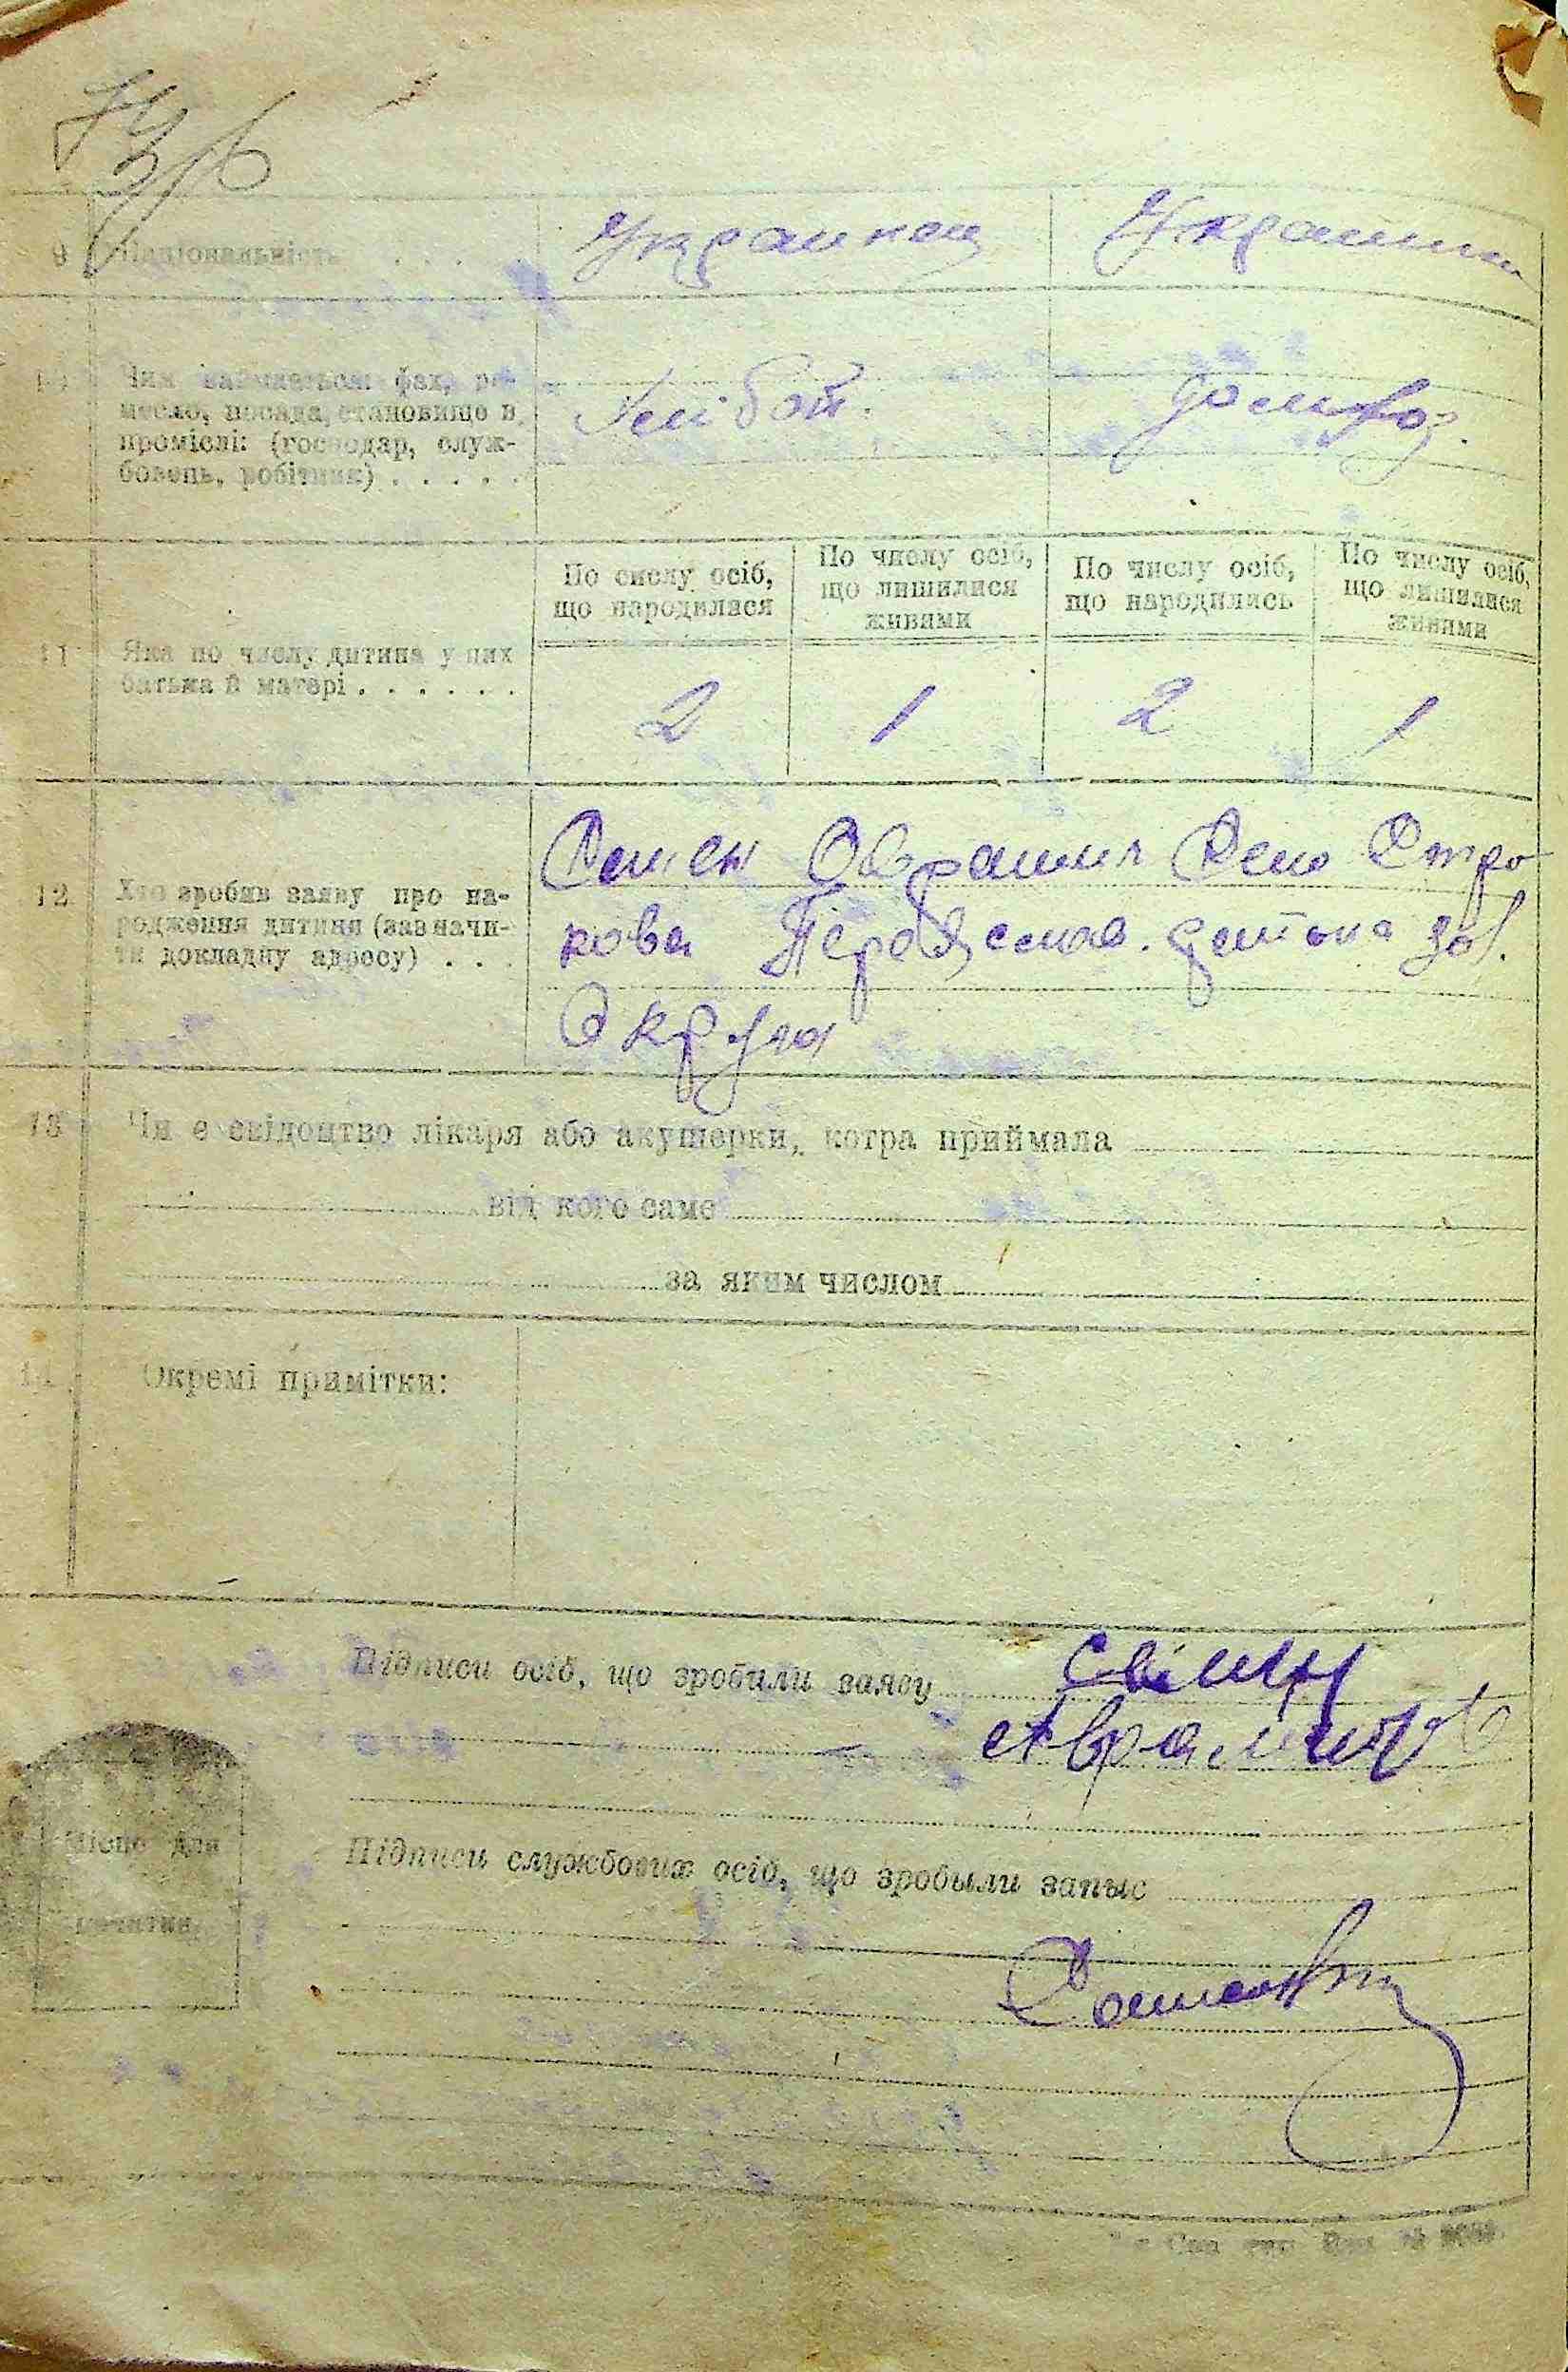 9 Національність . . . . . Украинец Украинка
10 Чим займається: фах, ре-
месло, посада, становище в
промислі: (господар, служ-
бовець, робітник) . . . . . Хлібоп. Домхоз.
По числу осіб,
що народилася
По числу осіб,
що лишилися
живими
По числу осіб,
що народились
По числу осіб,
що лишилися
живими
11 Яка по числу дитина у цих
батька й матері . . . . . . 2 1 2 1
12 Хто зробив заяву про на-
родження дитини (зазначи-
ти докладну адресу) . . .
Семен Село Стро
кова Переяслав.
Округи
13 Чи є свідоцтво лікаря або акушерки, котра приймала
від кого саме
за яким числом
14 Окремі примітки:
Підписи осіб, що зробили заяву
Підписи службових осіб, що зробыли запыс
Місце для
печатки